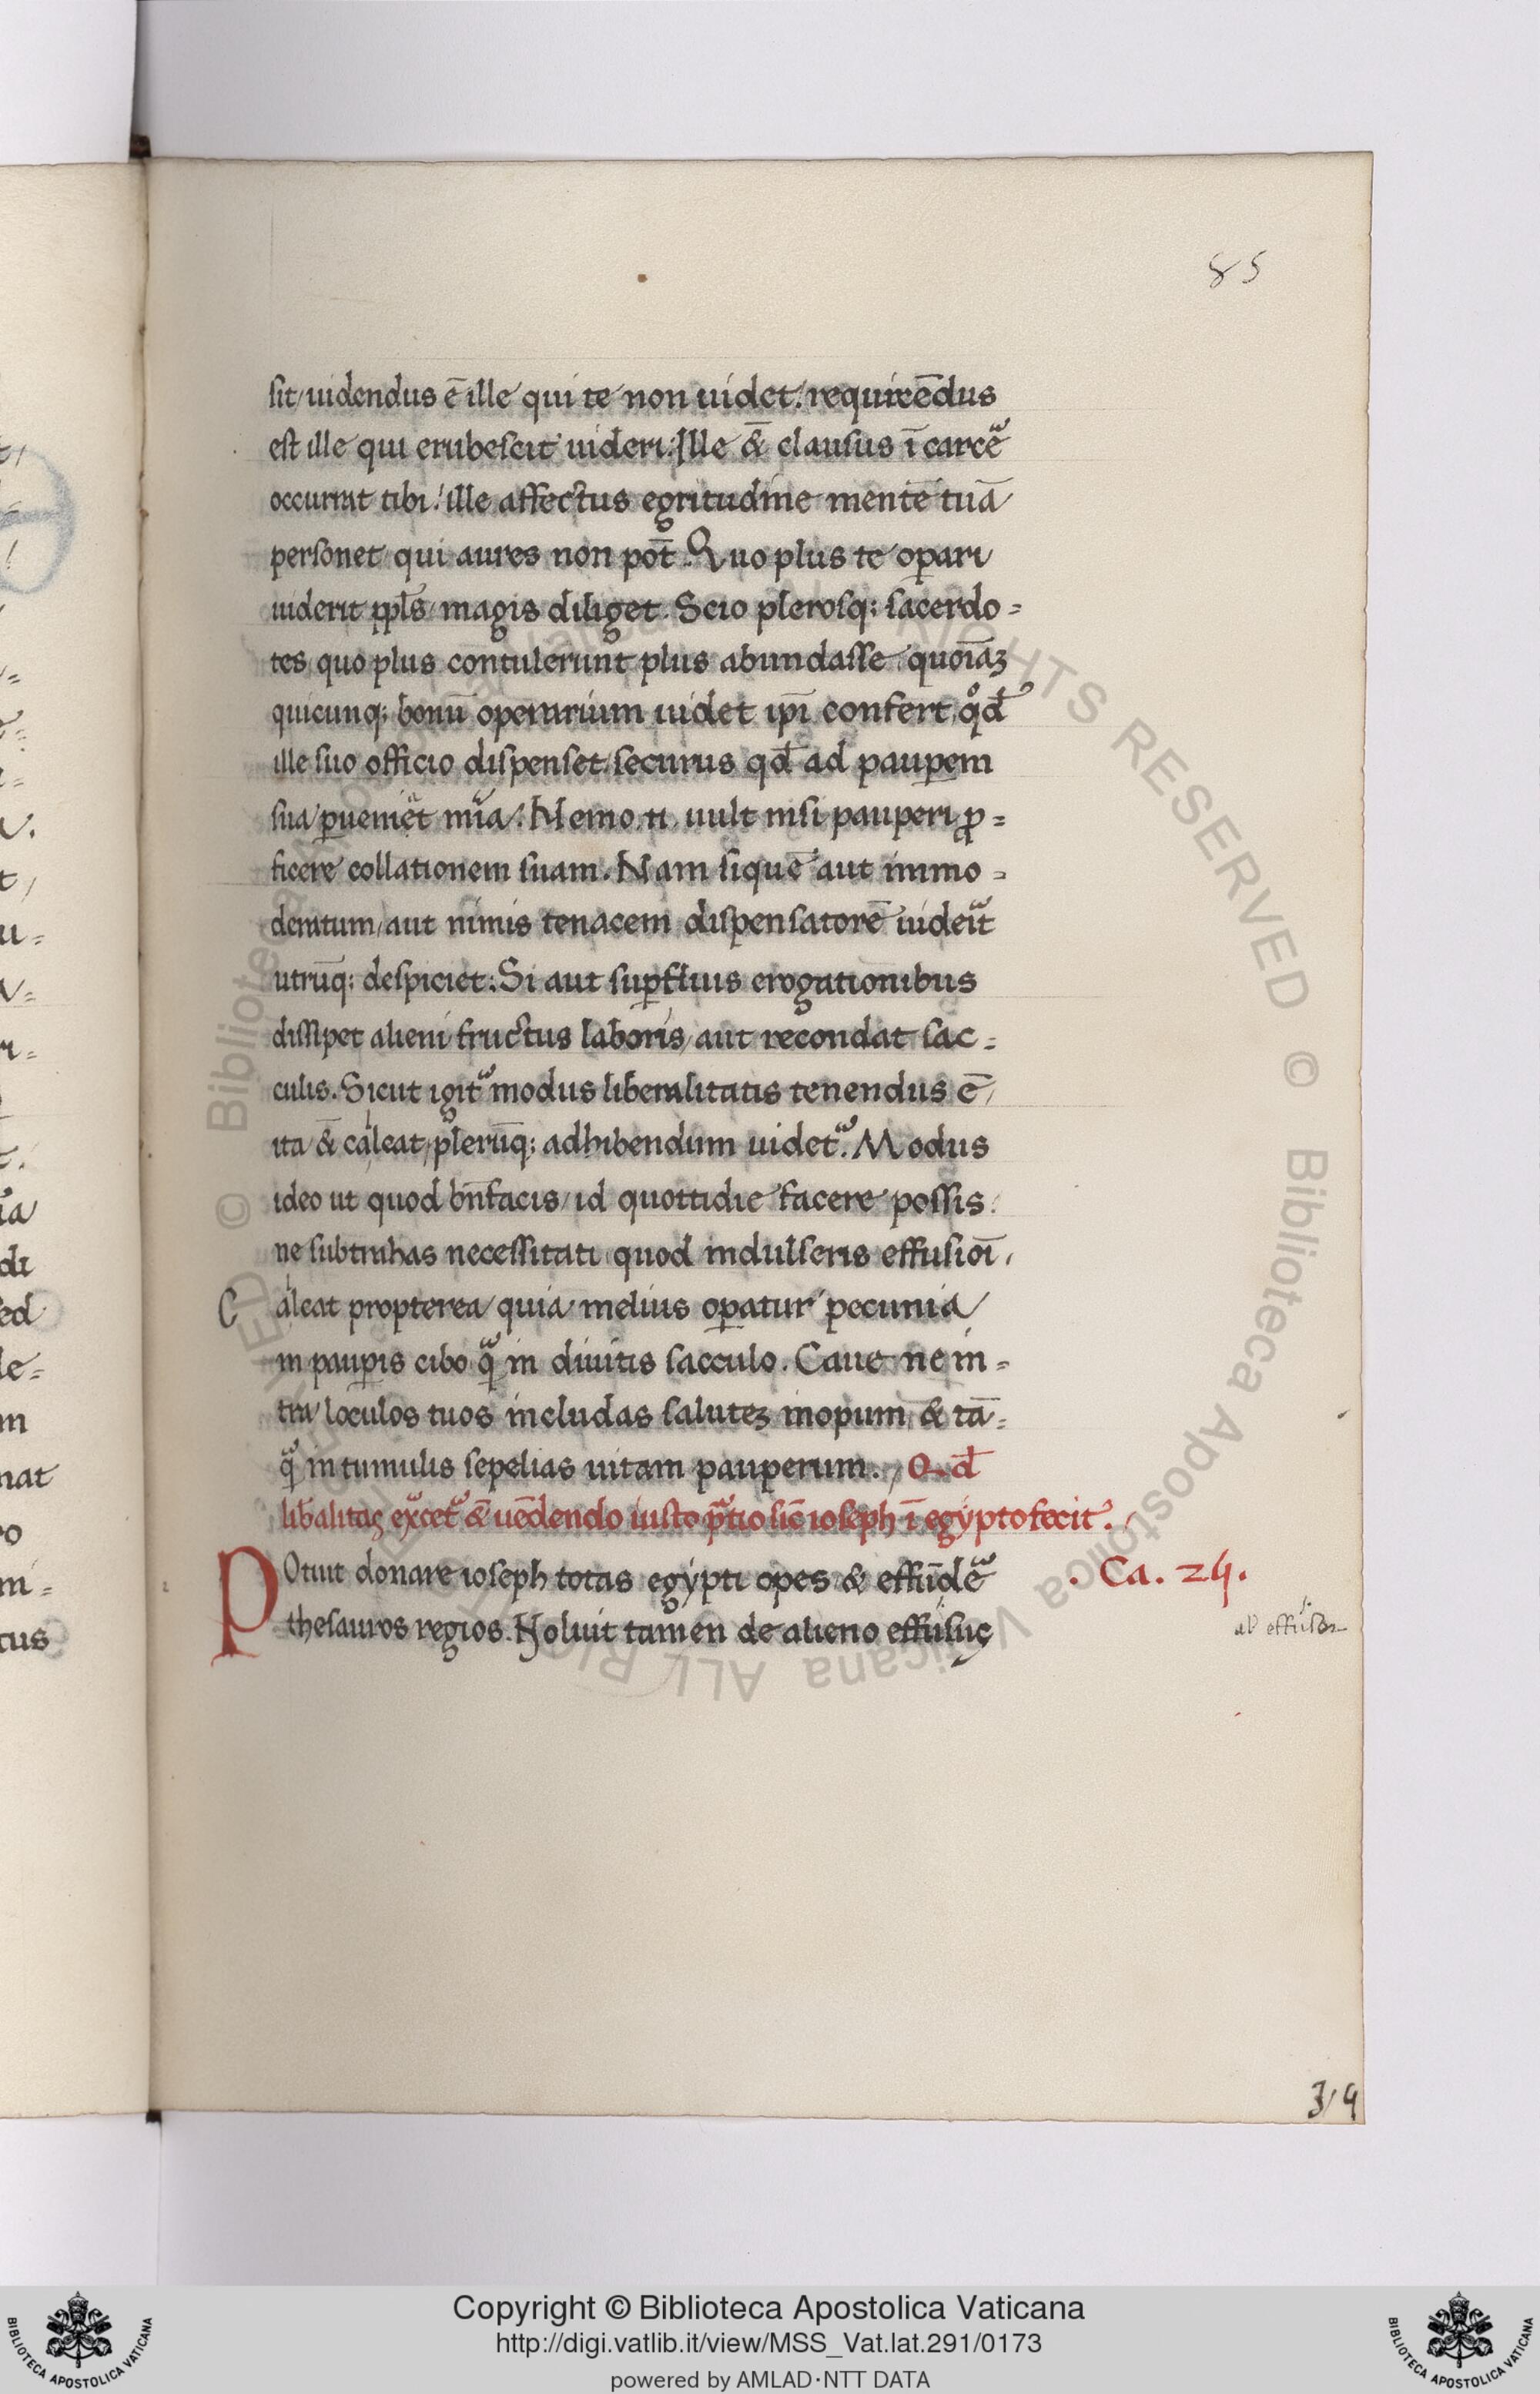 85
sit/ uidendus ē ille qui te non uidet. requirēdus
est ille qui erubescit uideri. Ille & clausus ī carcē
occurrat tibi. ille affectus egritudine mentē tuā
personet qui aures non pot̄. Quo plus te opari
uiderit ppl̄s/ magis diliget. Scio plerosq; sacerdo=
tes quo plus contulerunt plus abundasse. quoīaꝫ
quicunq; bonū operarium uidet ip̄i confert, qd̄
ille suo officio dispenset. securus qd̄ ad paupem
sua pueniet mīa. Nemo .n. uult nisi pauperi ꝓ=
ficere collationem suam. Nam siquē aut immo=
deratum/ aut nimis tenacem dispensatorē uideīt
utrūq; despiciet: Si aut supfluis erogationibus
dissipet alieni fructus laboris/ aut recondat sac=
culis. Sicut igit modus liberalitatis tenendus ē/
ita & caleat/ plerūq; adhibendum uidet. Modus
ideo ut quod bn̄facis/ id quottidie facere possis.
ne subtrahas necessitati quod indulseris effusioī.
Caleat propterea/ quia melius opatur pecunia
in paupis cibo q̄ in diuitis sacculo. Caue ne in=
tra loculos tuos includas saluteꝫ inopum & tā=
q̄ in tumulis sepelias uitam pauperum. Qd̄
libalitas excet & uēdendo iusto p̄tio sic̄ ioseph ī egypto fecit.
POtuit donare ioseph totas egypti opes & effūdē
. Ca. 24.
thesauros regios. Noluit tamen de alieno effusus
al' effusor
319
© Biblioteca Apostolica Vaticana ALL RIGHTS RESERVED
Copyright © Biblioteca Apostolica Vaticana
http://digi.vatlib.it/view/MSS_Vat.lat.291/0173
powered by AMLAD·NTT DATA
BIBLIOTECA APOSTOLICA VATICANA
BIBLIOTECA APOSTOLICA VATICANA